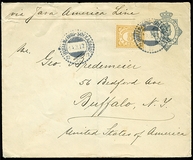 via Java America Line
Mr. Geo. Bredemeier
56 Bedford Ave
Buffalo, N.Y
United States of America